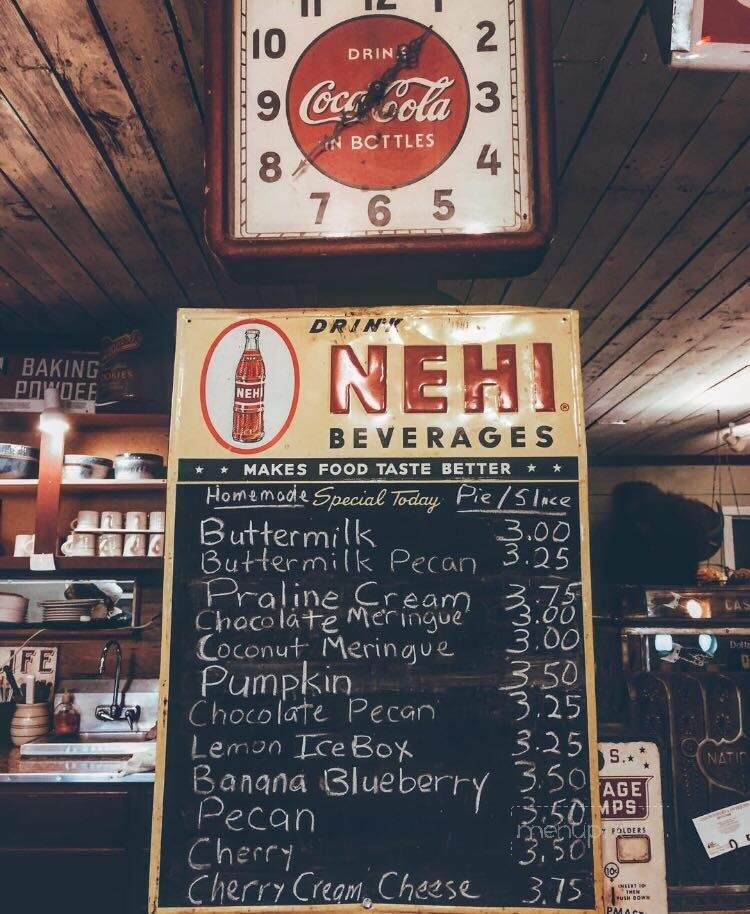 11 12 1
10 2
DRINK
Coca-Cola
9 3
IN BOTTLES
8 4
7 6 5
BAKING
POWDER
DRINK
NEHI
NEHI
BEVERAGES
★ ★ MAKES FOOD TASTE BETTER ★ ★
Homemade Special Today Pie/Slice
Buttermilk 3.00
Buttermilk Pecan 3.25
Praline Cream 3.75
Chocolate Meringue 3.00
Coconut Meringue 3.00
Pumpkin 3.50
Chocolate Pecan 3.25
Lemon IceBox 3.25
Banana Blueberry 3.50
Pecan 3.50
Cherry 3.50
Cherry Cream Cheese 3.75
menup
FE
CA
NATI
S.
AGE
MPS
FOLDERS
10¢
INSERT 10¢
THEN
PUSH DOWN